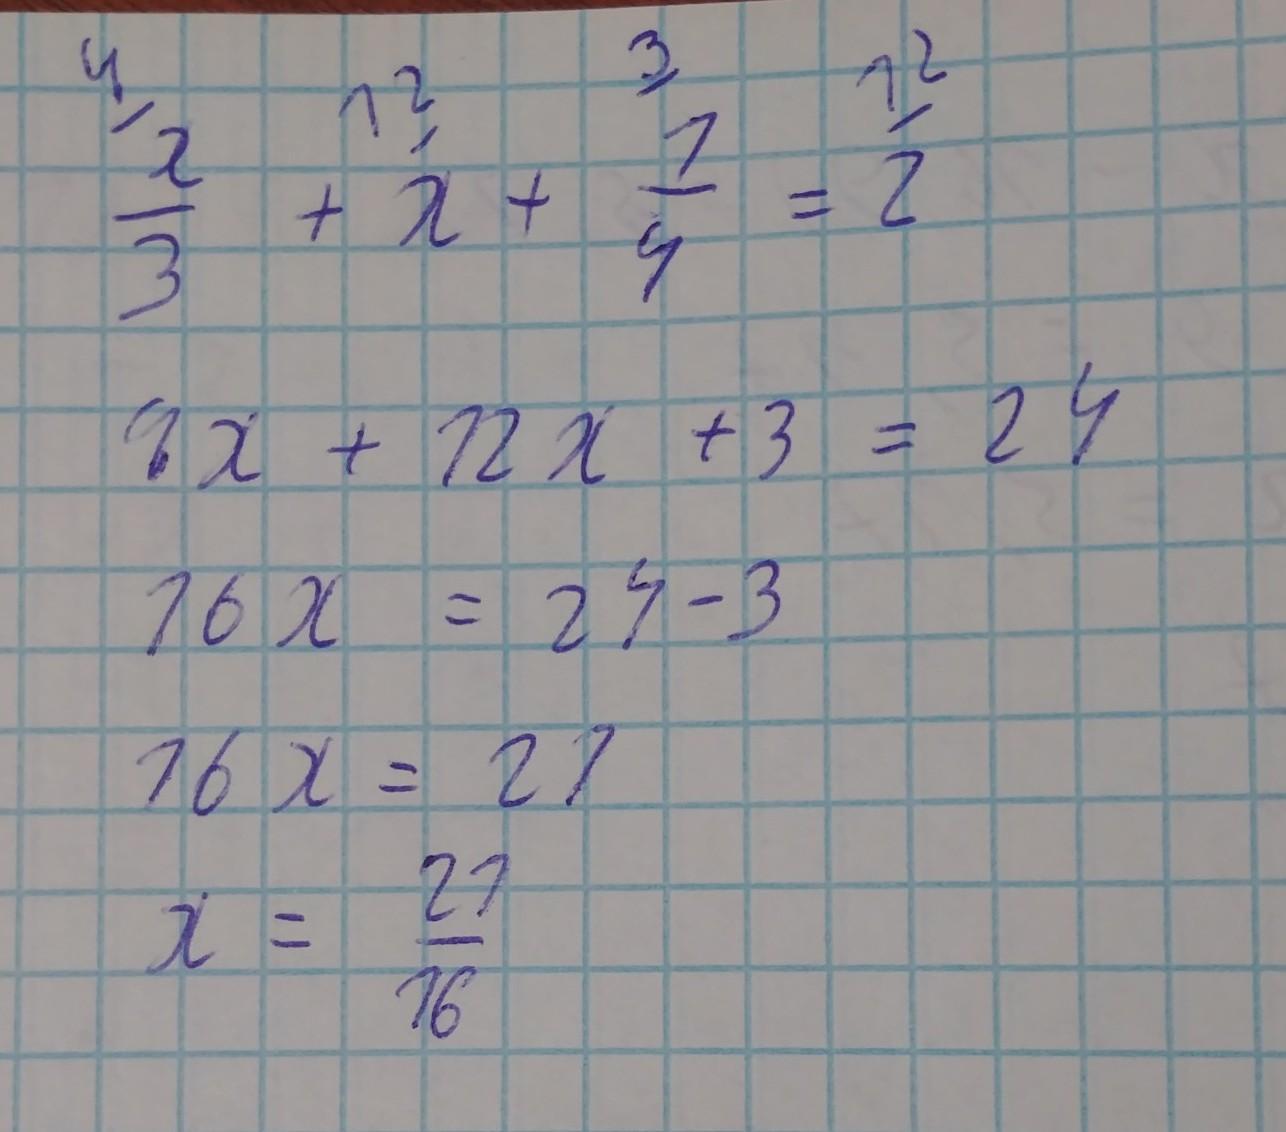 4/ 12/ 3/ 12/
x/3 + x + 1/4 = 2
8x + 12x + 3 = 24
16x = 24 - 3
16x = 21
x = 21/16